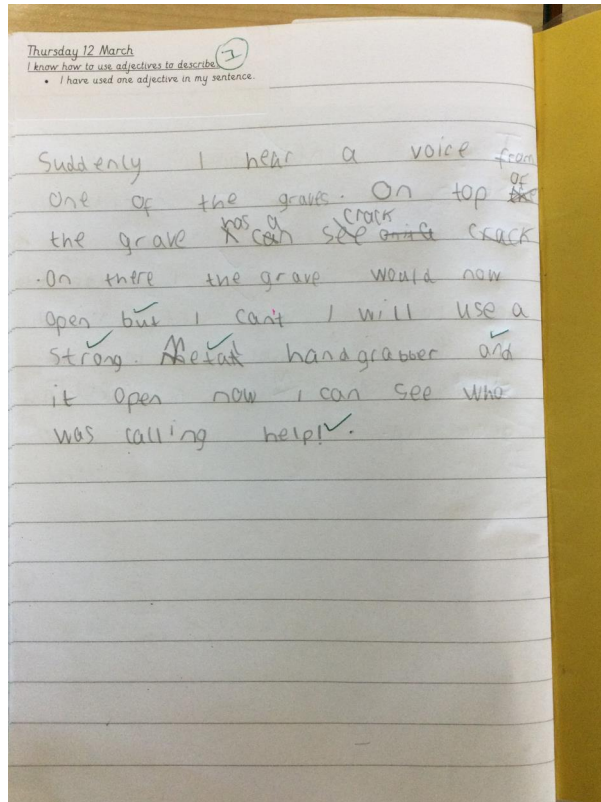 Thursday 12 March
I know how to use adjectives to describe.
• I have used one adjective in my sentence.
Suddenly I hear a voice from
one of the graves. On top of
the grave has a crack crack
.On there the grave would now
open but I can't I will use a
strong. Metal handgrabber and
it open now I can see who
was calling help!.